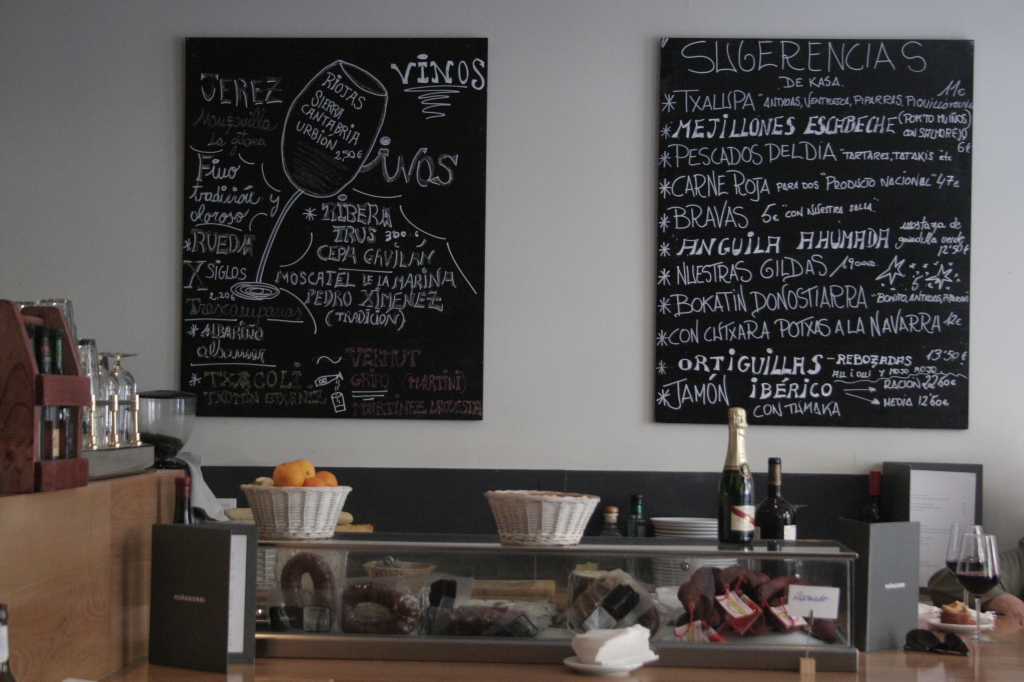 VINOS
JEREZ
Manzanilla
La gitana
RIOJAS
SIERRA
CANTABRIA
URBION
2,50€
Fino
tradición y
oloroso
*RUEDA
X SIGLOS
2,20€
* ALBARIÑO
* TXACOLI
TXOMIN ETXANIZ
* RIBERA
TRUS 3'00€
CEPA GAVILÁN
MOSCATEL DE LA MARINA
PEDRO XIMENEZ
(TRADICION)
VERMUT
GRIFO (MARTINI)
SUGERENCIAS
DE KASA
*TXALUPA ANTXOAS, VENTRESCA, PIPARRAS, PIQUILLO 11€
*MEJILLONES ESCABECHE (PORTO MUIÑOS)
CON SALMOREJO 6€
*PESCADOS DEL DIA TARTARES, TATAKIS etc
*CARNE ROJA PARA DOS "PRODUCTO NACIONAL" 47€
*BRAVAS 5€ "CON NUESTRA SALSA"
*ANGUILA AHUMADA mostaza de
guindilla verde
12'50€
*NUESTRAS GILDAS
*BOKATIN DONOSTIARRA "BONITO, ANTXOAS, PIPARRAS
*CON CUTXARA POTXAS A LA NAVARRA 12€
*ORTIGUILLAS - REBOZADAS 13'50€
ALLI OLI Y MOJO ROJO
*JAMÓN IBÉRICO RACIÓN 22'60€
MEDIA 12'60€
CON TUMAKA